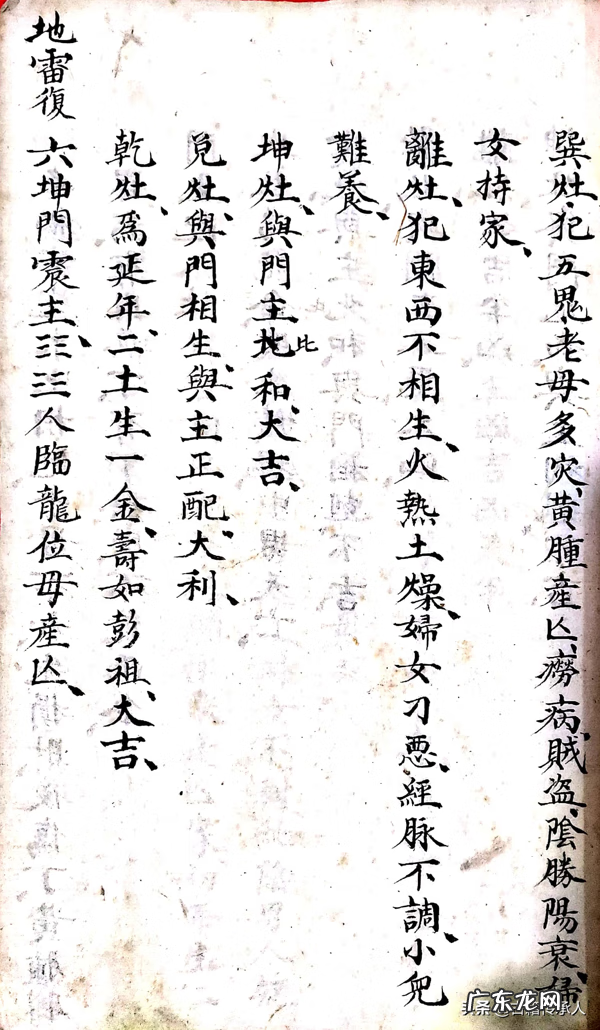 巽灶、犯五鬼、老母多灾、黄腫產亾、癆病、賊盗、陰勝陽衰、婦
女持家、
離灶、犯東西不相生、火熱土燥、婦女刁惡、經脉不調、小兒
難養、
坤灶、與門主比和、大吉、
兌灶、與門相生、與主正配、大利、
乾灶、爲延年、二土生一金、壽如彭祖、大吉、
地雷復 六坤門震主、☷☳人臨龍位母產亾、
广东龙网